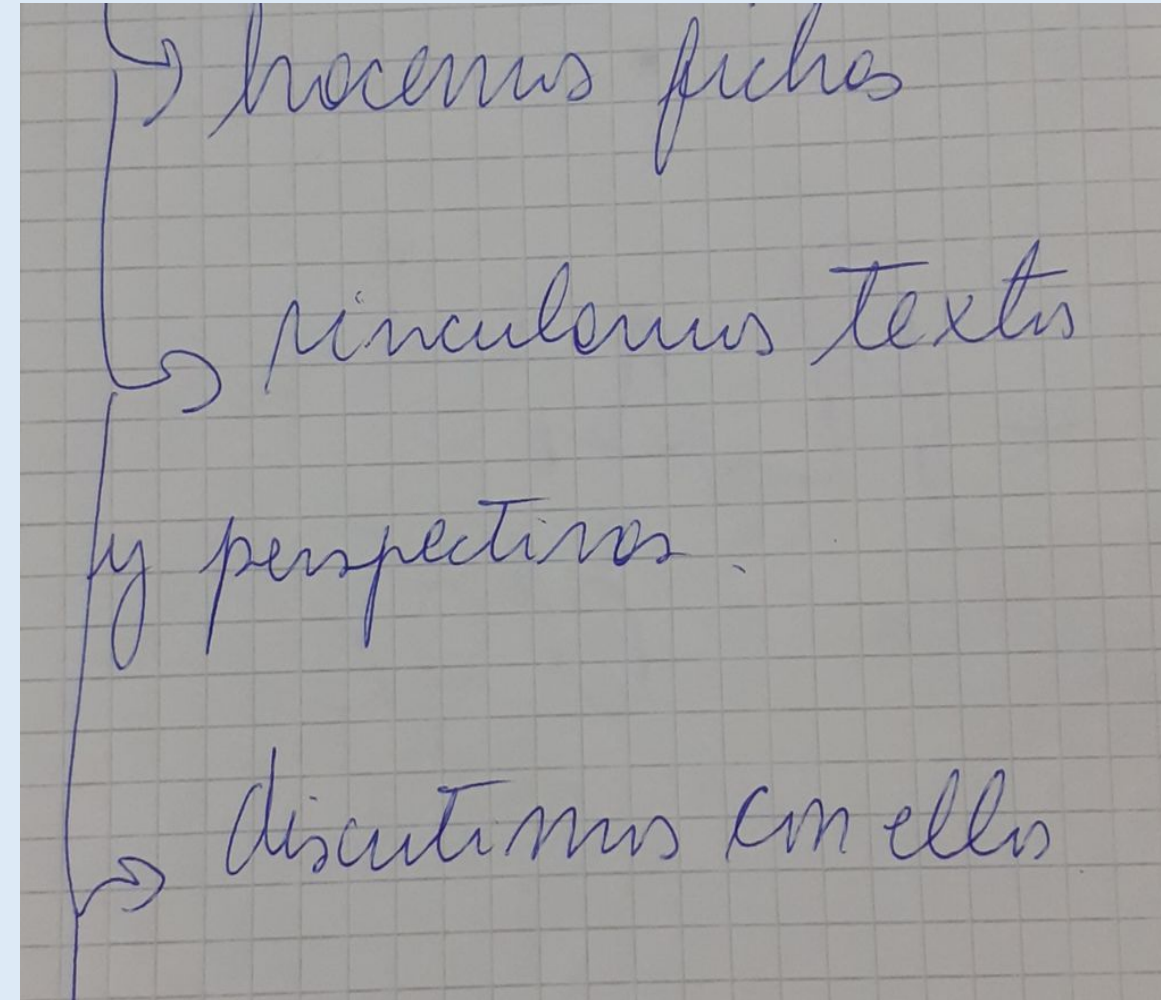 hacemos fichas
vinculamos textos
y perspectivas.
discutimos con ellos